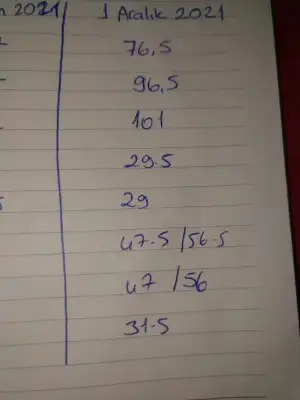 2021 1 Aralık 2021
76,5
96,5
101
29.5
29
47.5 /56.5
47 /56
31.5